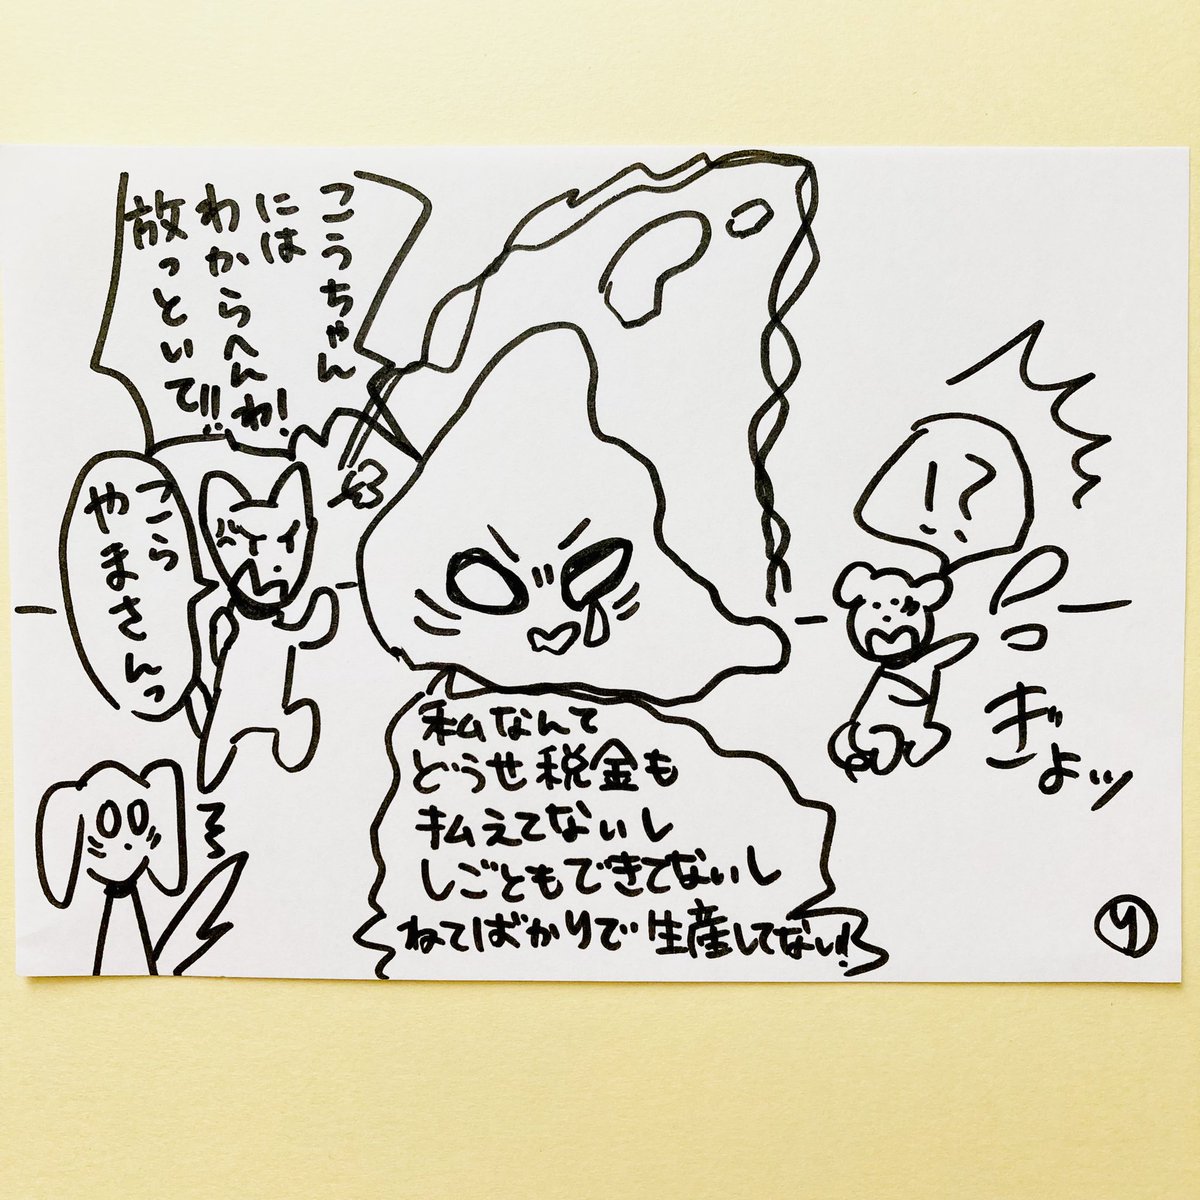 こうちゃん
には
わからへんわ!
放っといて!!
こら
やまさんっ
ベイイ
!?
ぎょッ
私なんて
どうせ税金も
払えてないし
しごともできてないし
ねてばかりで生産してない!